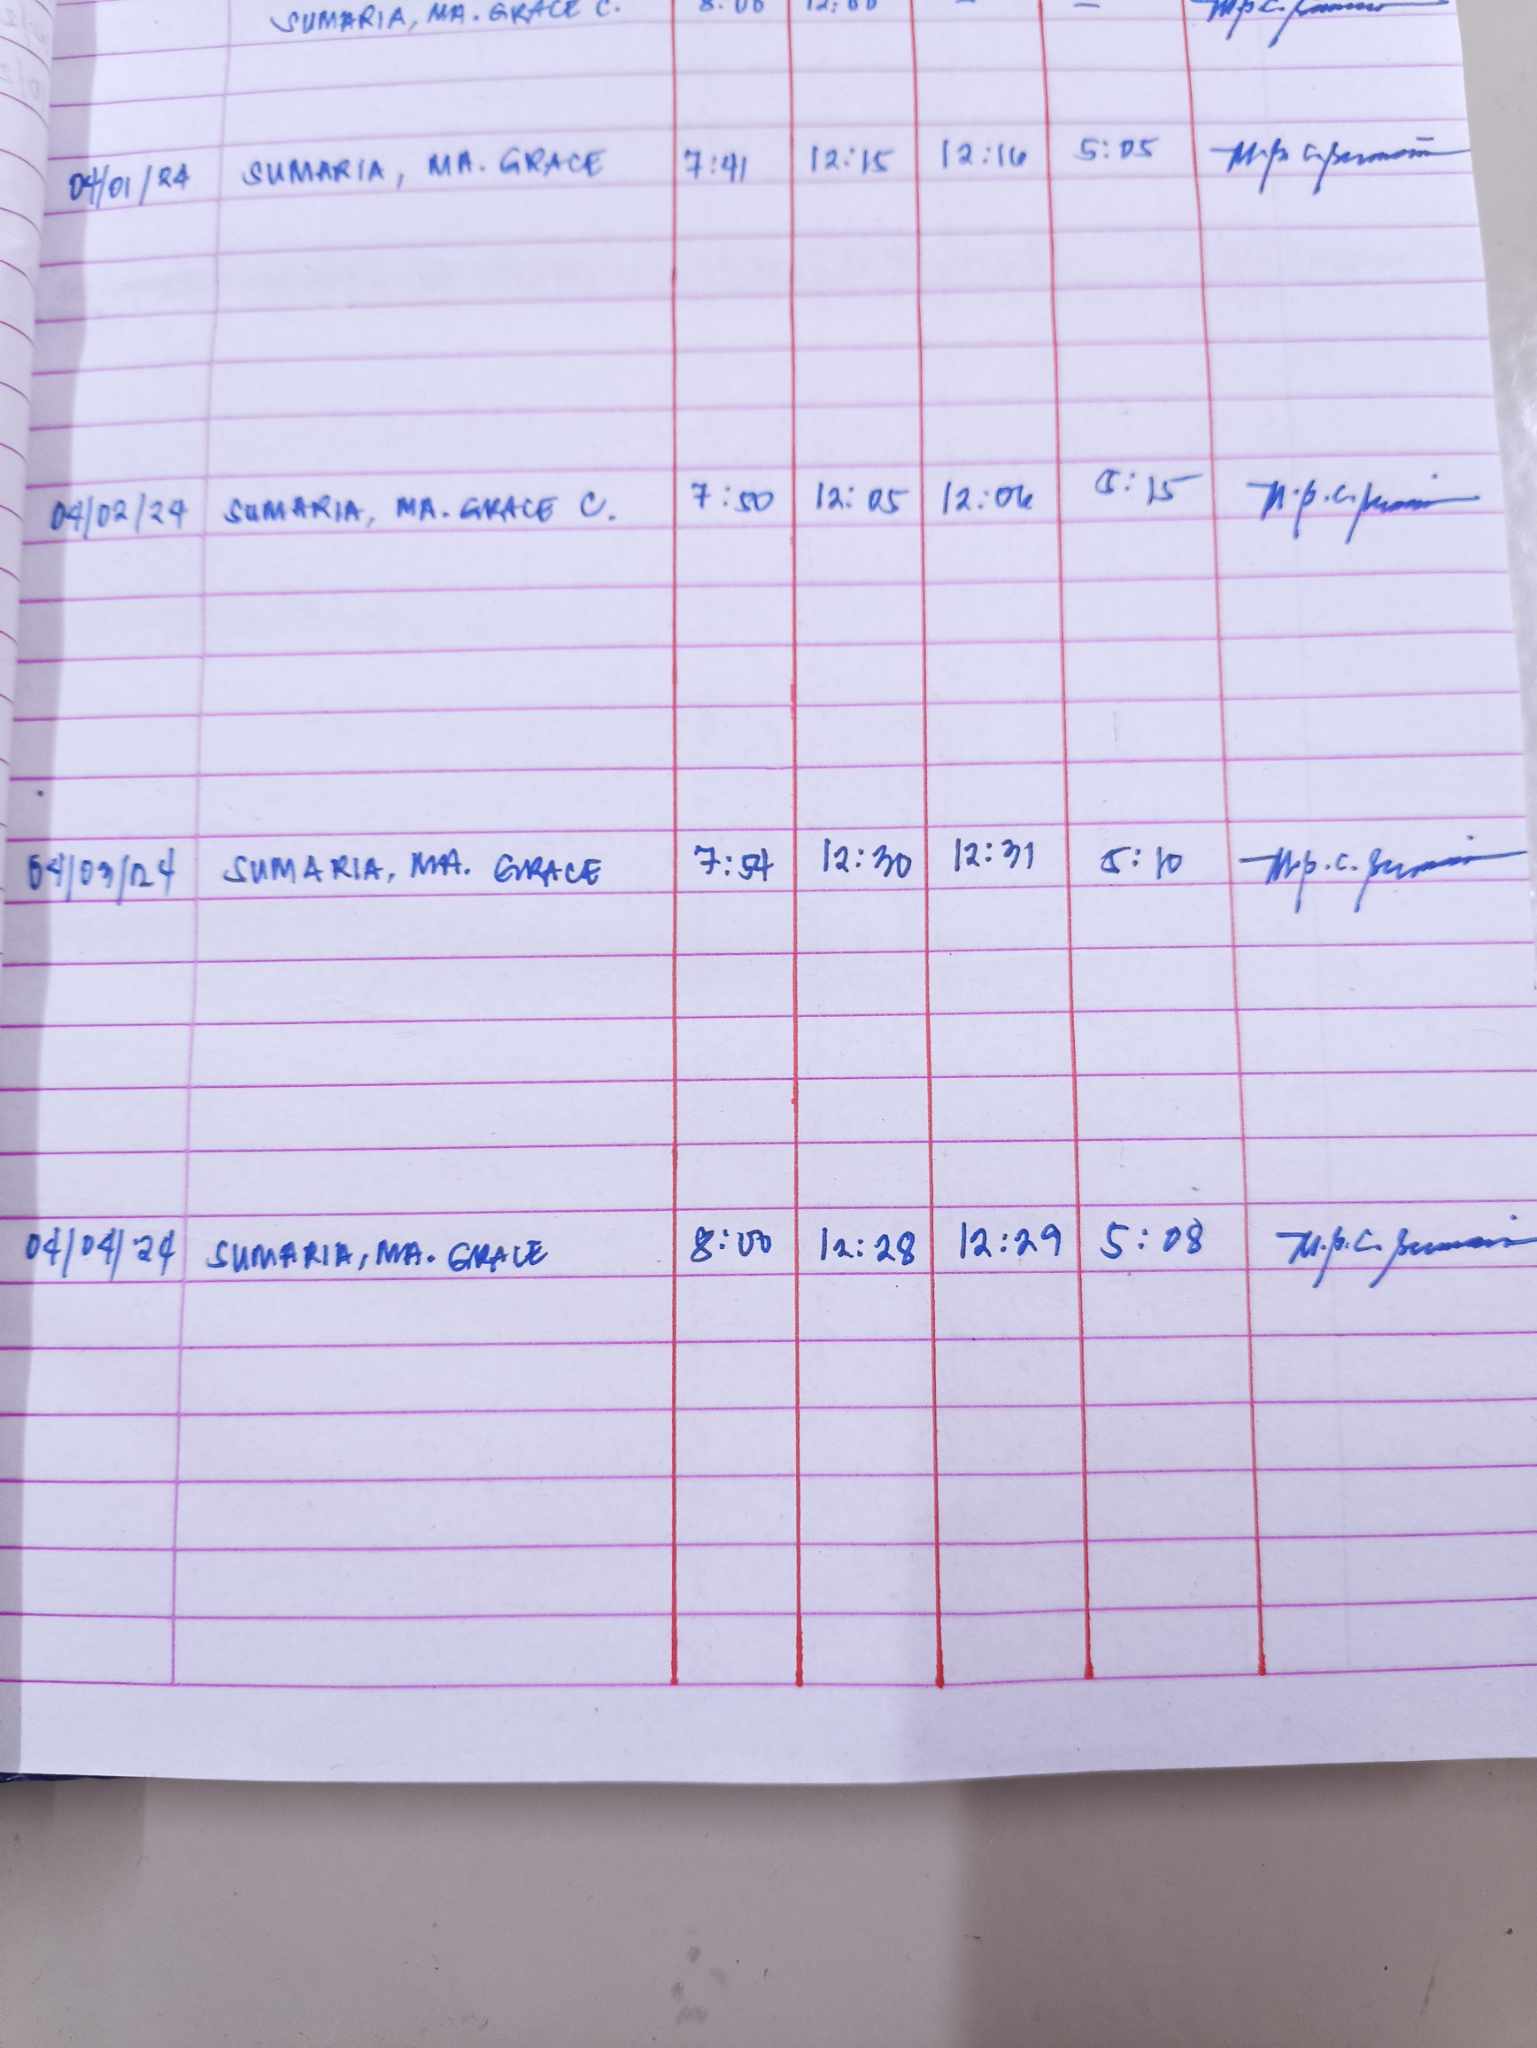 SUMARIA, MA. GRACE C. 8:00 12:00 - -
04/01/24 SUMARIA, MA. GRACE 7:41 12:15 12:16 5:05
04/02/24 SUMARIA, MA. GRACE C. 7:50 12:05 12:06 5:15
04/03/24 SUMARIA, MA. GRACE 7:54 12:30 12:31 5:10
04/04/24 SUMARIA, MA. GRACE 8:00 12:28 12:29 5:08